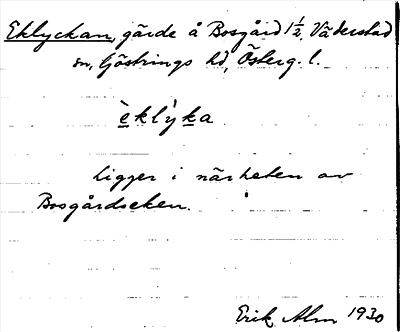 Eklyckan, gärde å Bosgård 1 1/2, Väderstad
sn, Göstrings hd, Österg. l.
è̱klỳḵa
Ligger i närheten av
Bosgårdseken.
Erik Alm 1930